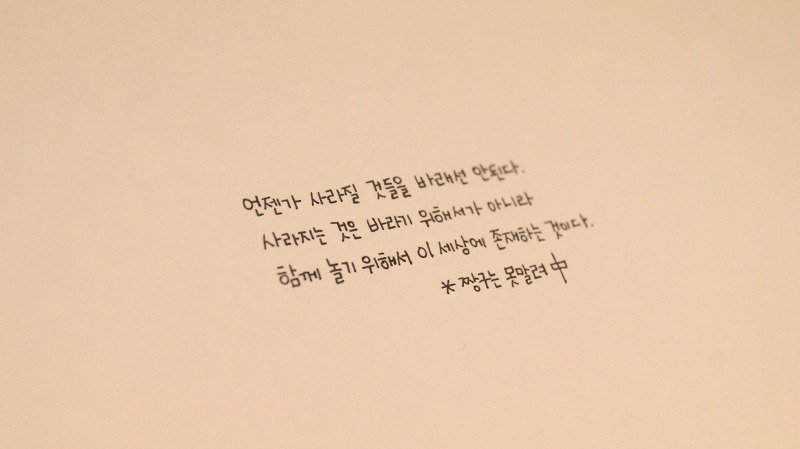 언젠가 사라질 것들을 바래선 안된다.
사라지는 것은 바라기 위해서가 아니라
함께 놀기 위해서 이 세상에 존재하는 것이다.
* 짱구는 못말려 中